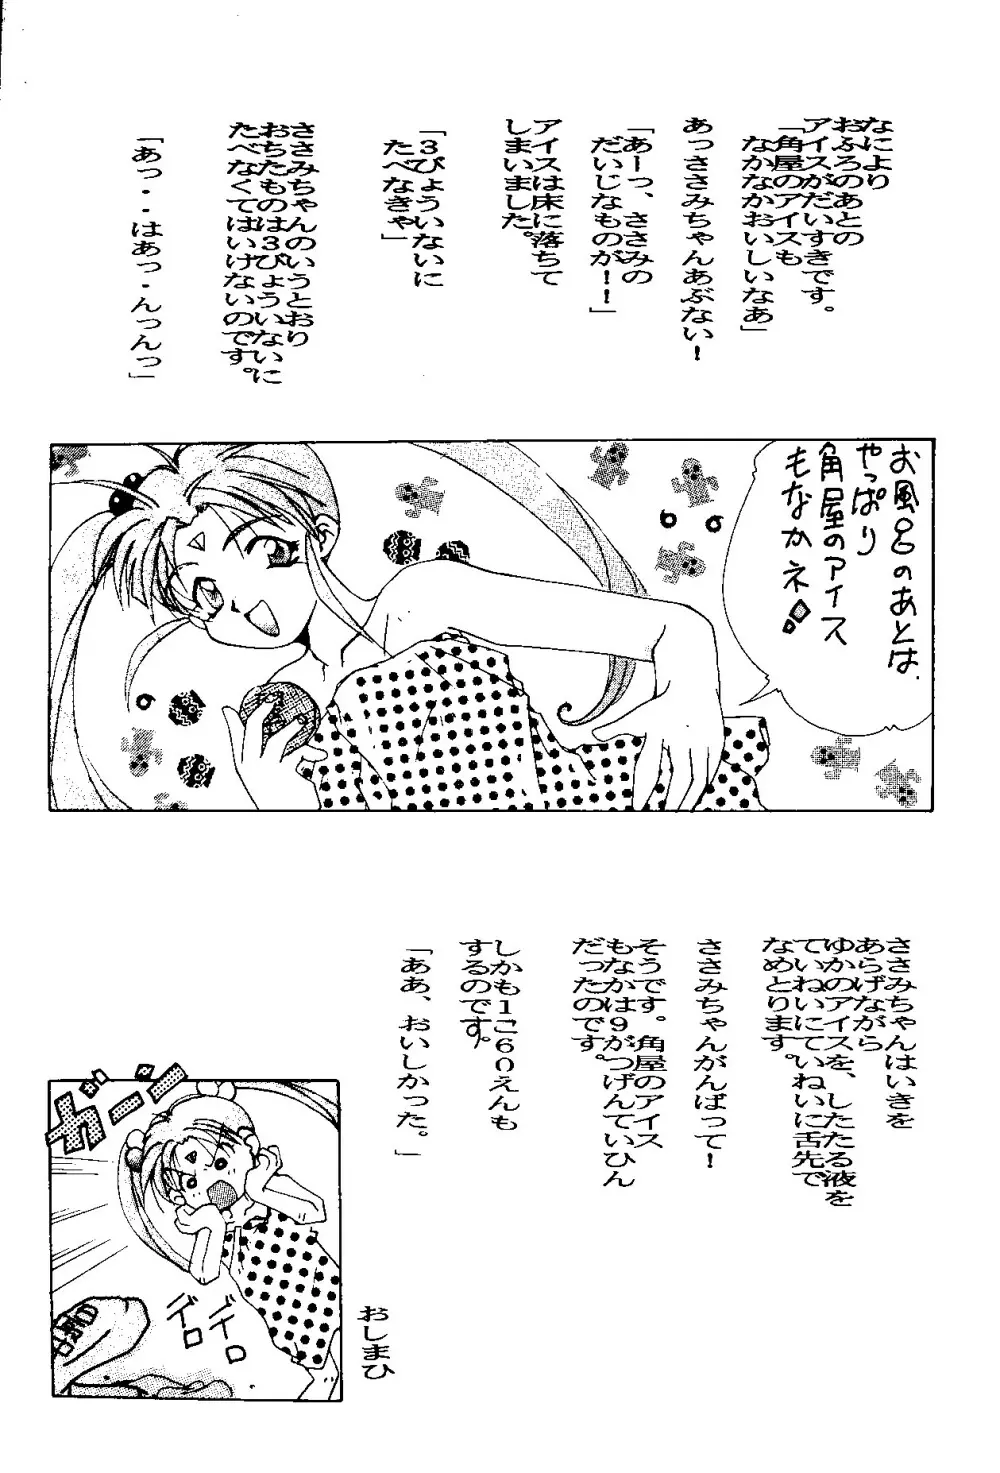 なにより
おふろのあとの
アイスがだいすきです。
「角屋のアイスも
なかなかおいしいなあ」
あっささみちゃんあぶない！
「あーっ、ささみの
だいじなものが！！」
アイスは床に落ちて
しまいました。
「３びょういないに
たべなきゃ」
ささみちゃんのいうとおり
おちたものは３びょういないに
たべなくてはいけないのです。
「あっ・・はあっ・んっんっ」
お風呂のあとは、
やっぱり
角屋のアイス
もなかネ！
ささみちゃんはいきを
あらげながら
ゆかのアイスを、したたる液を
ていねいにていねいに舌先で
なめとります。
ささみちゃんがんばって！
そうです。角屋のアイス
もなかは９がつげんていひん
だったのです。
しかも１こ６０えんも
するのです。
「ああ、おいしかった。」
ガーン
デロ
デロ
おしまひ